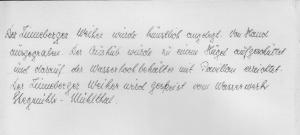 Der Zinneberger Weiher wurde künstlich angelegt. Von Hand
ausgegraben. Der Aushub wurde zu einem Hügel aufgeschüttet
und darauf der Wasserhochbehälter mit Pavillon errichtet.
Der Zinneberger Weiher wird gespeist vom Wasserwerk
- Mühlthal.